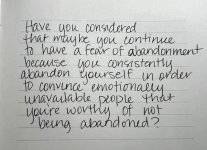 Have you considered
that maybe you continue
to have a fear of abandonment
because you consistently
abandon yourself in order
to convince emotionally
unavailable people that
you're worthy of not
being abandoned?